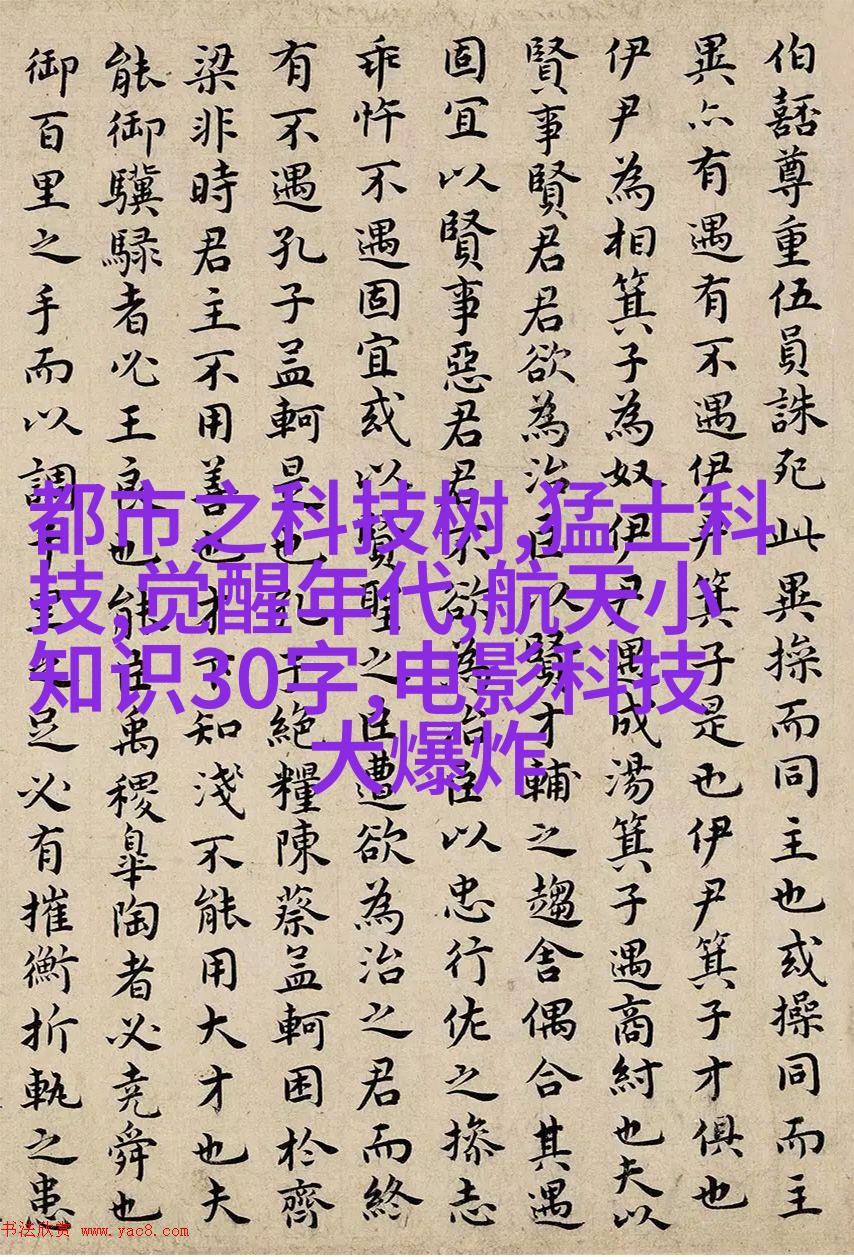 伯嚭尊重伍員誅死此異操而同主也或操同而主
異亦有遇有不遇伊尹箕子是也伊尹箕子才俱也
伊尹為相箕子為奴伊尹遇成湯箕子遇商紂也夫以
賢事賢君君欲為治臣以賢才輔之趨舍偶合其遇
固宜以賢事惡君君不欲為治臣以忠行佐之操志
乖忤不遇固宜或以賢聖之臣遭欲為治之君而終
有不遇孔子孟軻是也孔子絶糧陳蔡孟軻困於齊
梁非時君主不用善也才下知淺不能用大才也夫
能御驥騄者必王良也能臣禹稷皐陶者必堯舜也
御百里之手而以調千里之足必有摧衡折軛之患
都市之科技树,猛士科
技,觉醒年代,航天小
知识30字,电影科技
大爆炸
书法欣赏 www.yac8.com